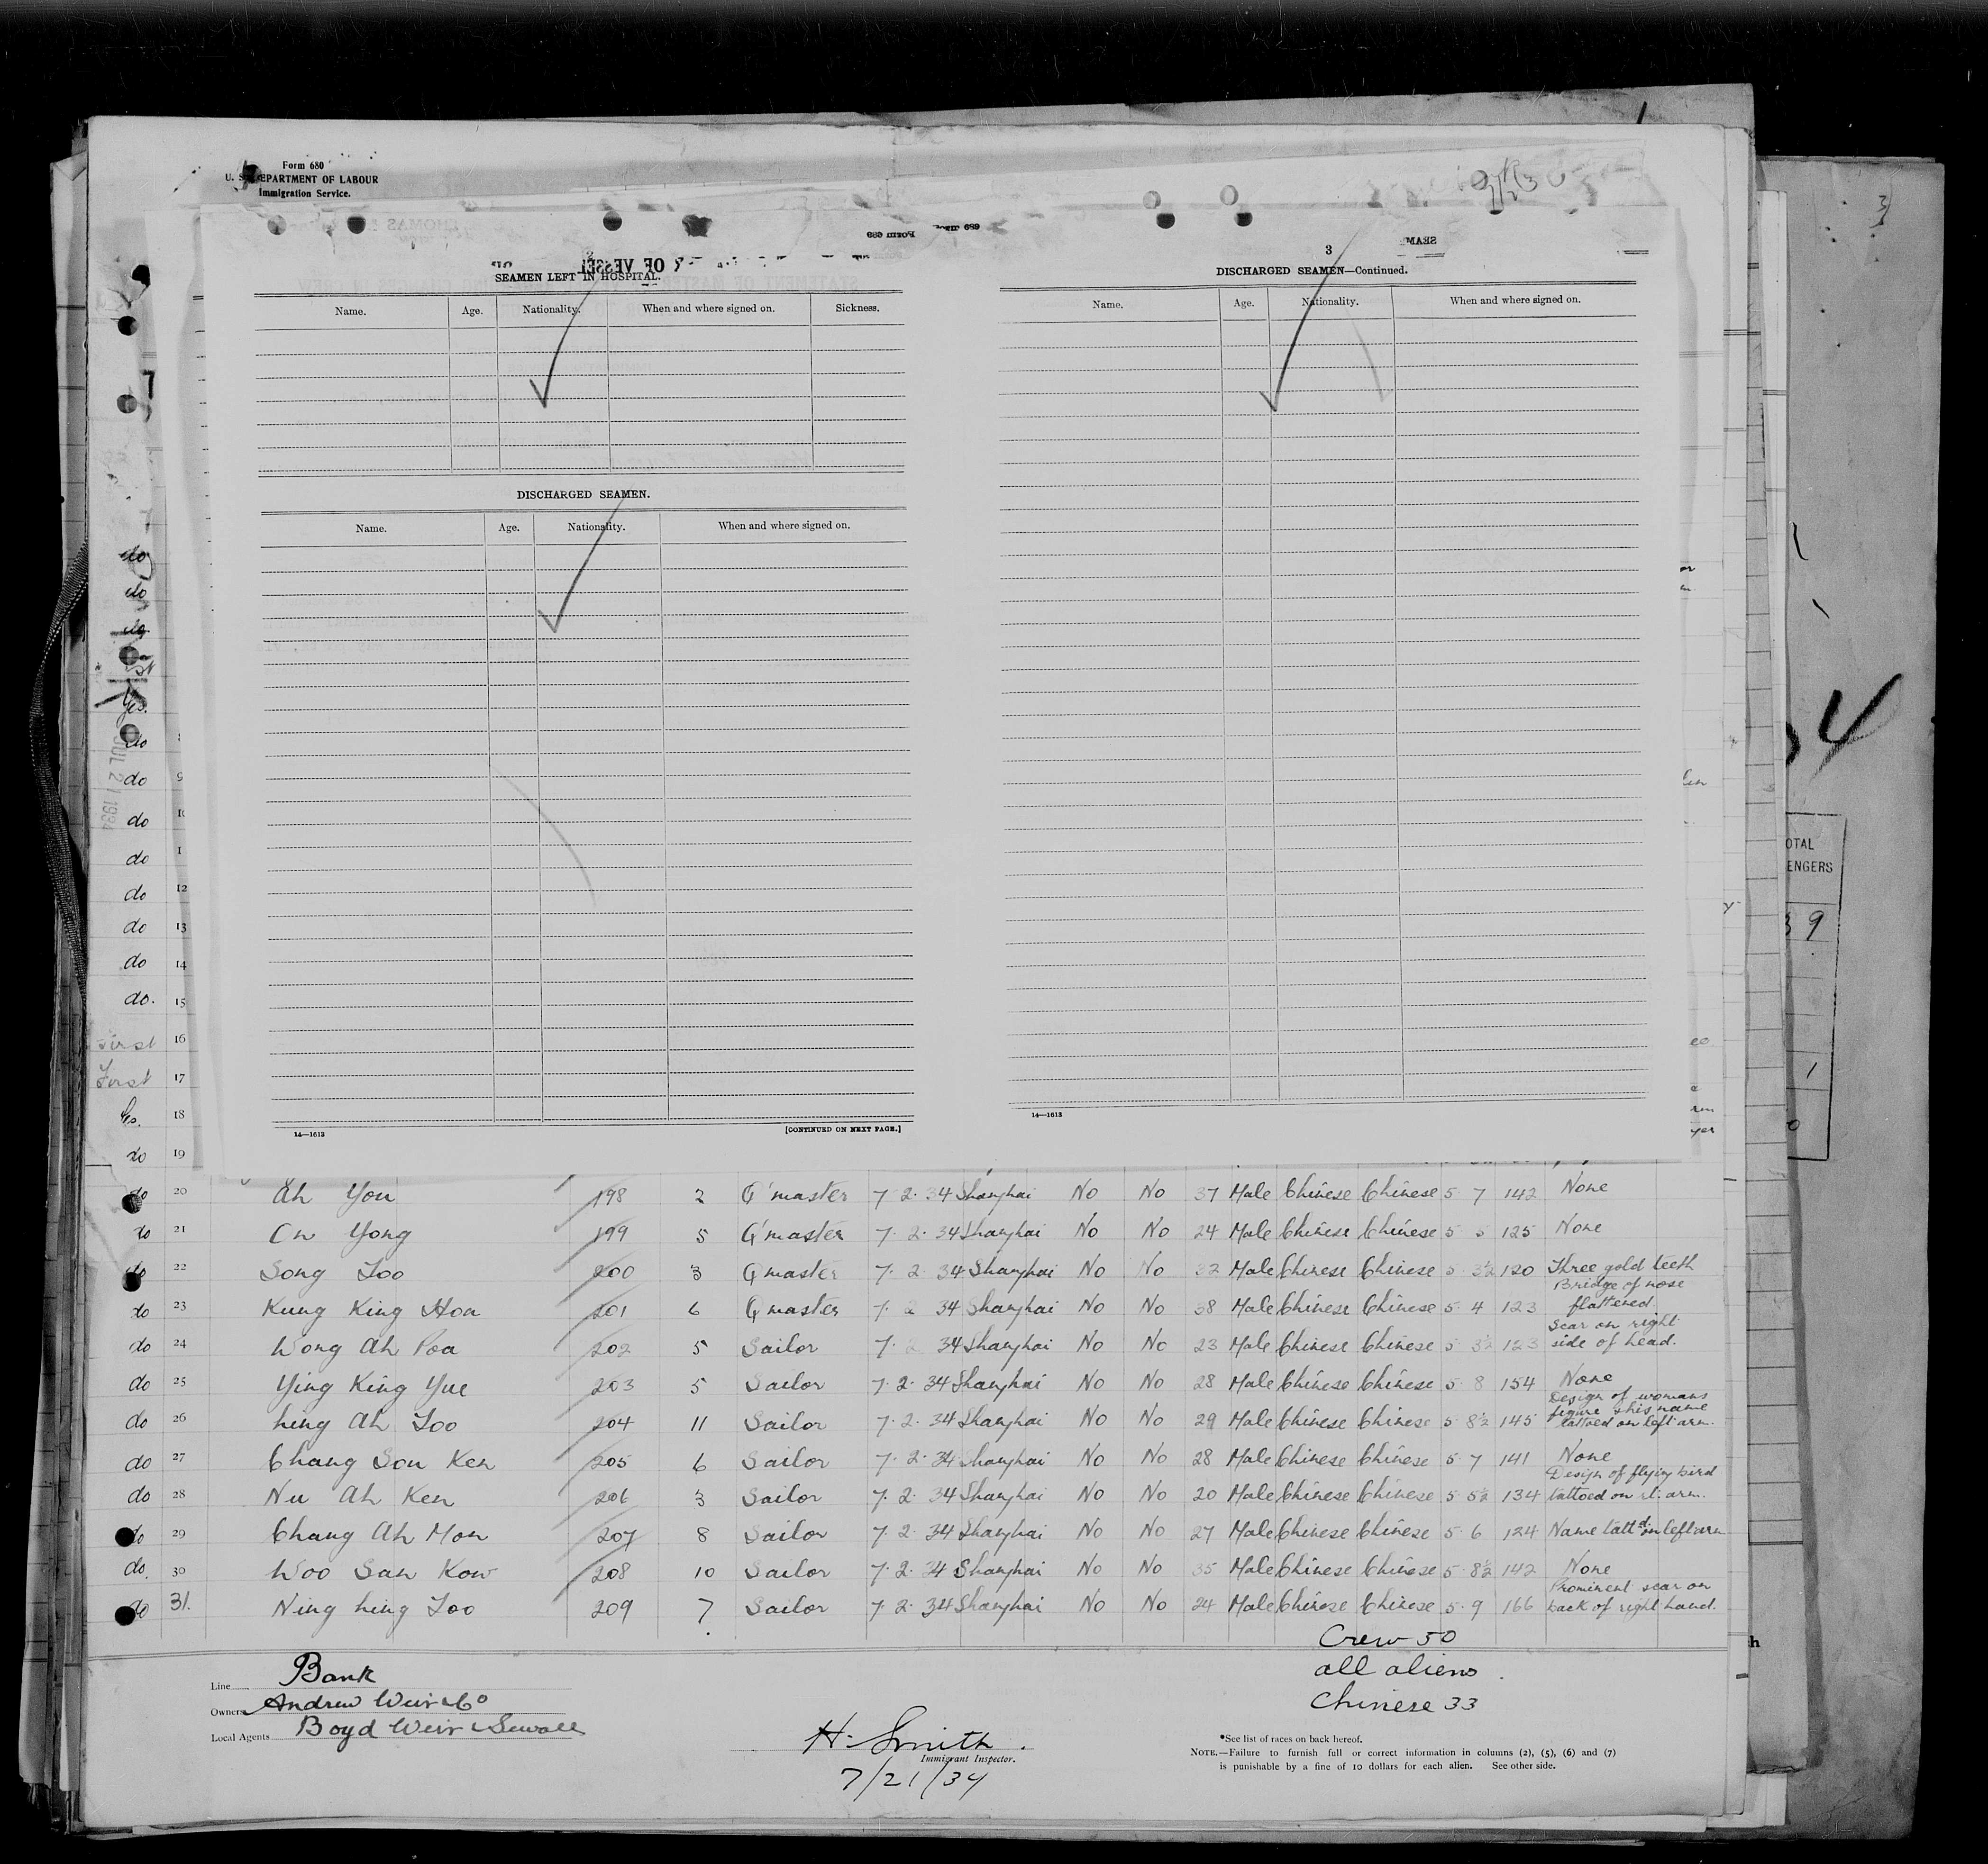 Form 680
U. S. DEPARTMENT OF LABOUR
Immigration Service.
SEAMEN LEFT IN HOSPITAL.
Name. Age. Nationality. When and where signed on. Sickness.
DISCHARGED SEAMEN.
Name. Age. Nationality. When and where signed on.
14—1613 [CONTINUED ON NEXT PAGE.]
3
DISCHARGED SEAMEN—Continued.
Name. Age. Nationality. When and where signed on.
14—1613
do
do
do
Yes.
do
JUL 21 1934
do 9
do
do
do 12
do 13
do 14
do. 15
First 16
First 17
Yes. 18
do 19
do 20 Ah You 198 2 Q'master 7. 2. 34 Shanghai No No 37 Male Chinese Chinese 5 7 142 None
do 21 On Yong 199 5 Q'master 7. 2. 34 Shanghai No No 24 Male Chinese Chinese 5 5 125 None
do 22 Song Loo 200 3 Qmaster 7. 2. 34 Shanghai No No 32 Male Chinese Chinese 5 3½ 120 Three gold teeth
do 23 Kung King Hoa 201 6 Qmaster 7. 2 34 Shanghai No No 38 Male Chinese Chinese 5 4 123 Bridge of nose flattened
do 24 Wong Ah Poa 202 5 Sailor 7. 2 34 Shanghai No No 23 Male Chinese Chinese 5 3½ 123 Scar on right side of head.
do 25 Ying King Yue 203 5 Sailor 7. 2. 34 Shanghai No No 28 Male Chinese Chinese 5 8 154 None
do 26 Ling Ah Loo 204 11 Sailor 7. 2. 34 Shanghai No No 29 Male Chinese Chinese 5 8½ 145 Design of womans figure & his name tattoed on left arm.
do 27 Chang Sou Ken 205 6 Sailor 7. 2. 34 Shanghai No No 28 Male Chinese Chinese 5 7 141 None
do 28 Nu Ah Ken 206 3 Sailor 7. 2. 34 Shanghai No No 20 Male Chinese Chinese 5 5½ 134 Design of flying bird tattoed on rt. arm.
do 29 Chang Ah Mow 207 8 Sailor 7. 2. 34 Shanghai No No 27 Male Chinese Chinese 5 6 124 Name tattd. on left arm
do. 30 Woo San Kow 208 10 Sailor 7. 2. 34 Shanghai No No 35 Male Chinese Chinese 5 8½ 142 None
do 31. Ning Ling Loo 209 7 Sailor 7. 2. 34 Shanghai No No 24 Male Chinese Chinese 5 9 166 Prominent scar on back of right hand.
Crew 50
all aliens
Chinese 33
Line Bank
Owners Andrew Weir & Co
Local Agents Boyd Weir & Sewell
H. Smith
Immigrant Inspector.
7/21/34
*See list of races on back hereof.
NOTE.—Failure to furnish full or correct information in columns (2), (5), (6) and (7)
is punishable by a fine of 10 dollars for each alien. See other side.
34
3 9
1
0